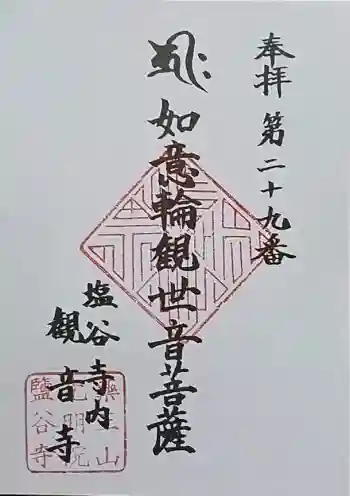 奉拝 第二十九番
如意輪観世音菩薩
塩谷寺内
観音寺